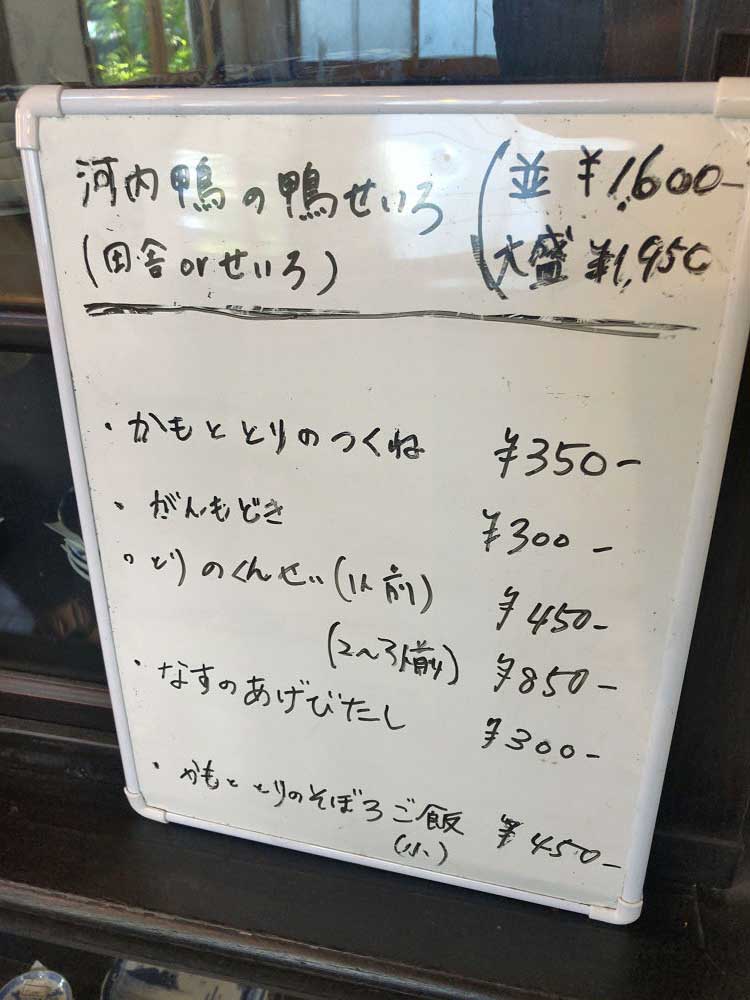 河内鴨の鴨せいろ (並 ¥1,600-
(田舎orせいろ) 大盛 ¥1,950
・かもととりのつくね ¥350-
・がんもどき ¥300-
・とりのくんせい(1人前) ¥450-
(2〜3人前) ¥850-
・なすのあげびたし ¥300-
・かもととりのそぼろご飯 ¥450-
(小)